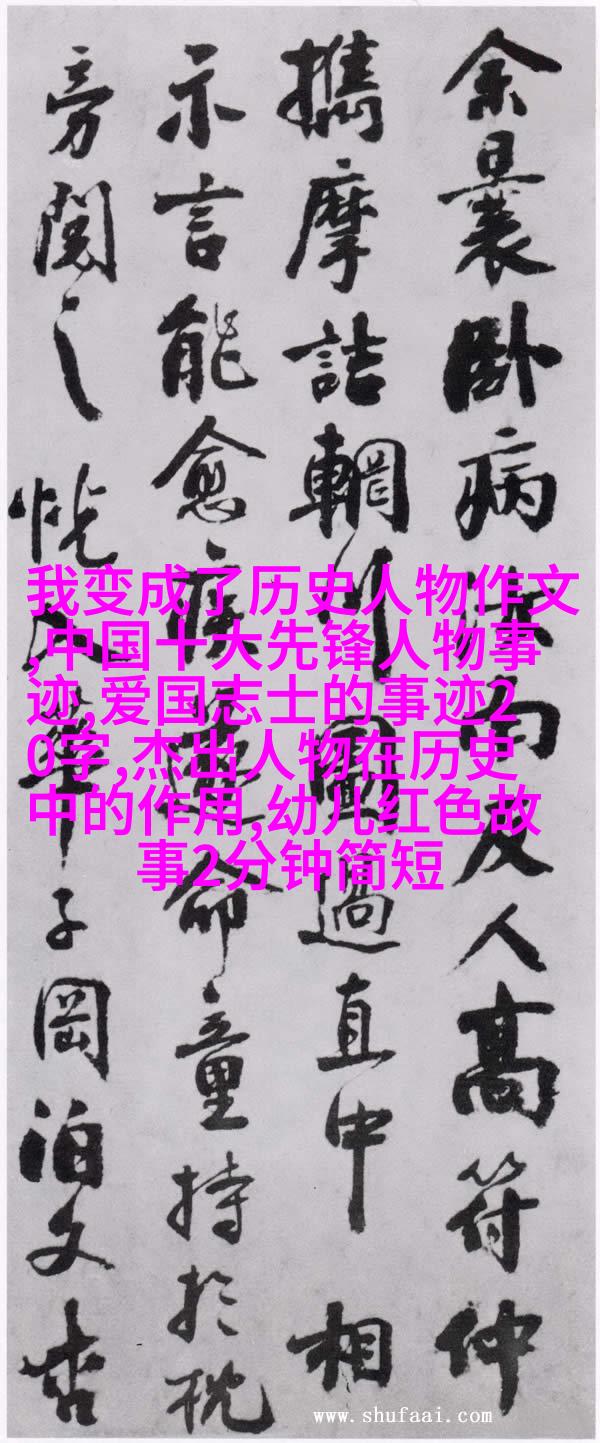 余曩卧病汝南友人高符仲
攜摩詰輞川圖過直中相
示言能愈疾遂命童持於枕
旁閱之恍入華子岡泊文杏
我变成了历史人物作文
,中国十大先锋人物事
迹,爱国志士的事迹2
0字,杰出人物在历史
中的作用,幼儿红色故
事2分钟简短
www.shufaai.com